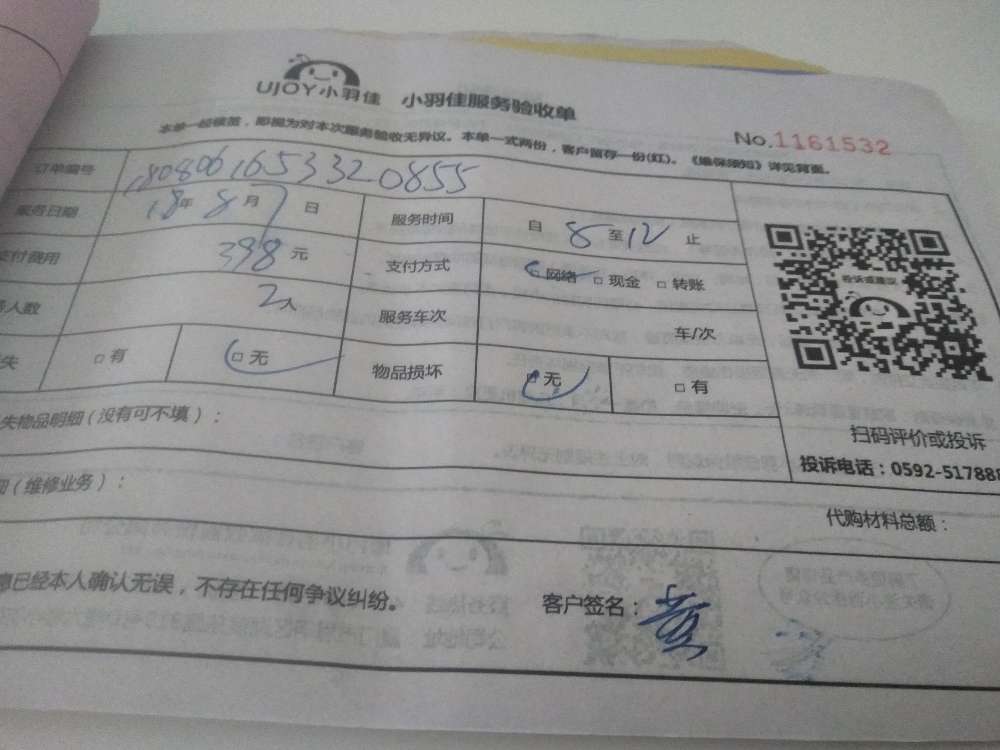 UJOY小羽佳 小羽佳服务验收单
No.1161532
本单一经签, 即视为对本次服务验收无异议。本单一式两份，客户留存一份(红)。《维保须知》详见背面。
订单编号 180806165332 0855
服务日期 18年 8月 7日 服务时间 自 8 至 12 止
支付费用 398 元 支付方式 □网络 □现金 □转账
人数 2人 服务车次 车/次
失 □有 □无 物品损坏 □无 □有
投诉或建议
扫码评价或投诉
投诉电话：0592-517888
失物品明细（没有可不填）：
细（维修业务）：
代购材料总额：
息已经本人确认无误，不存在任何争议纠纷。 客户签名：黄